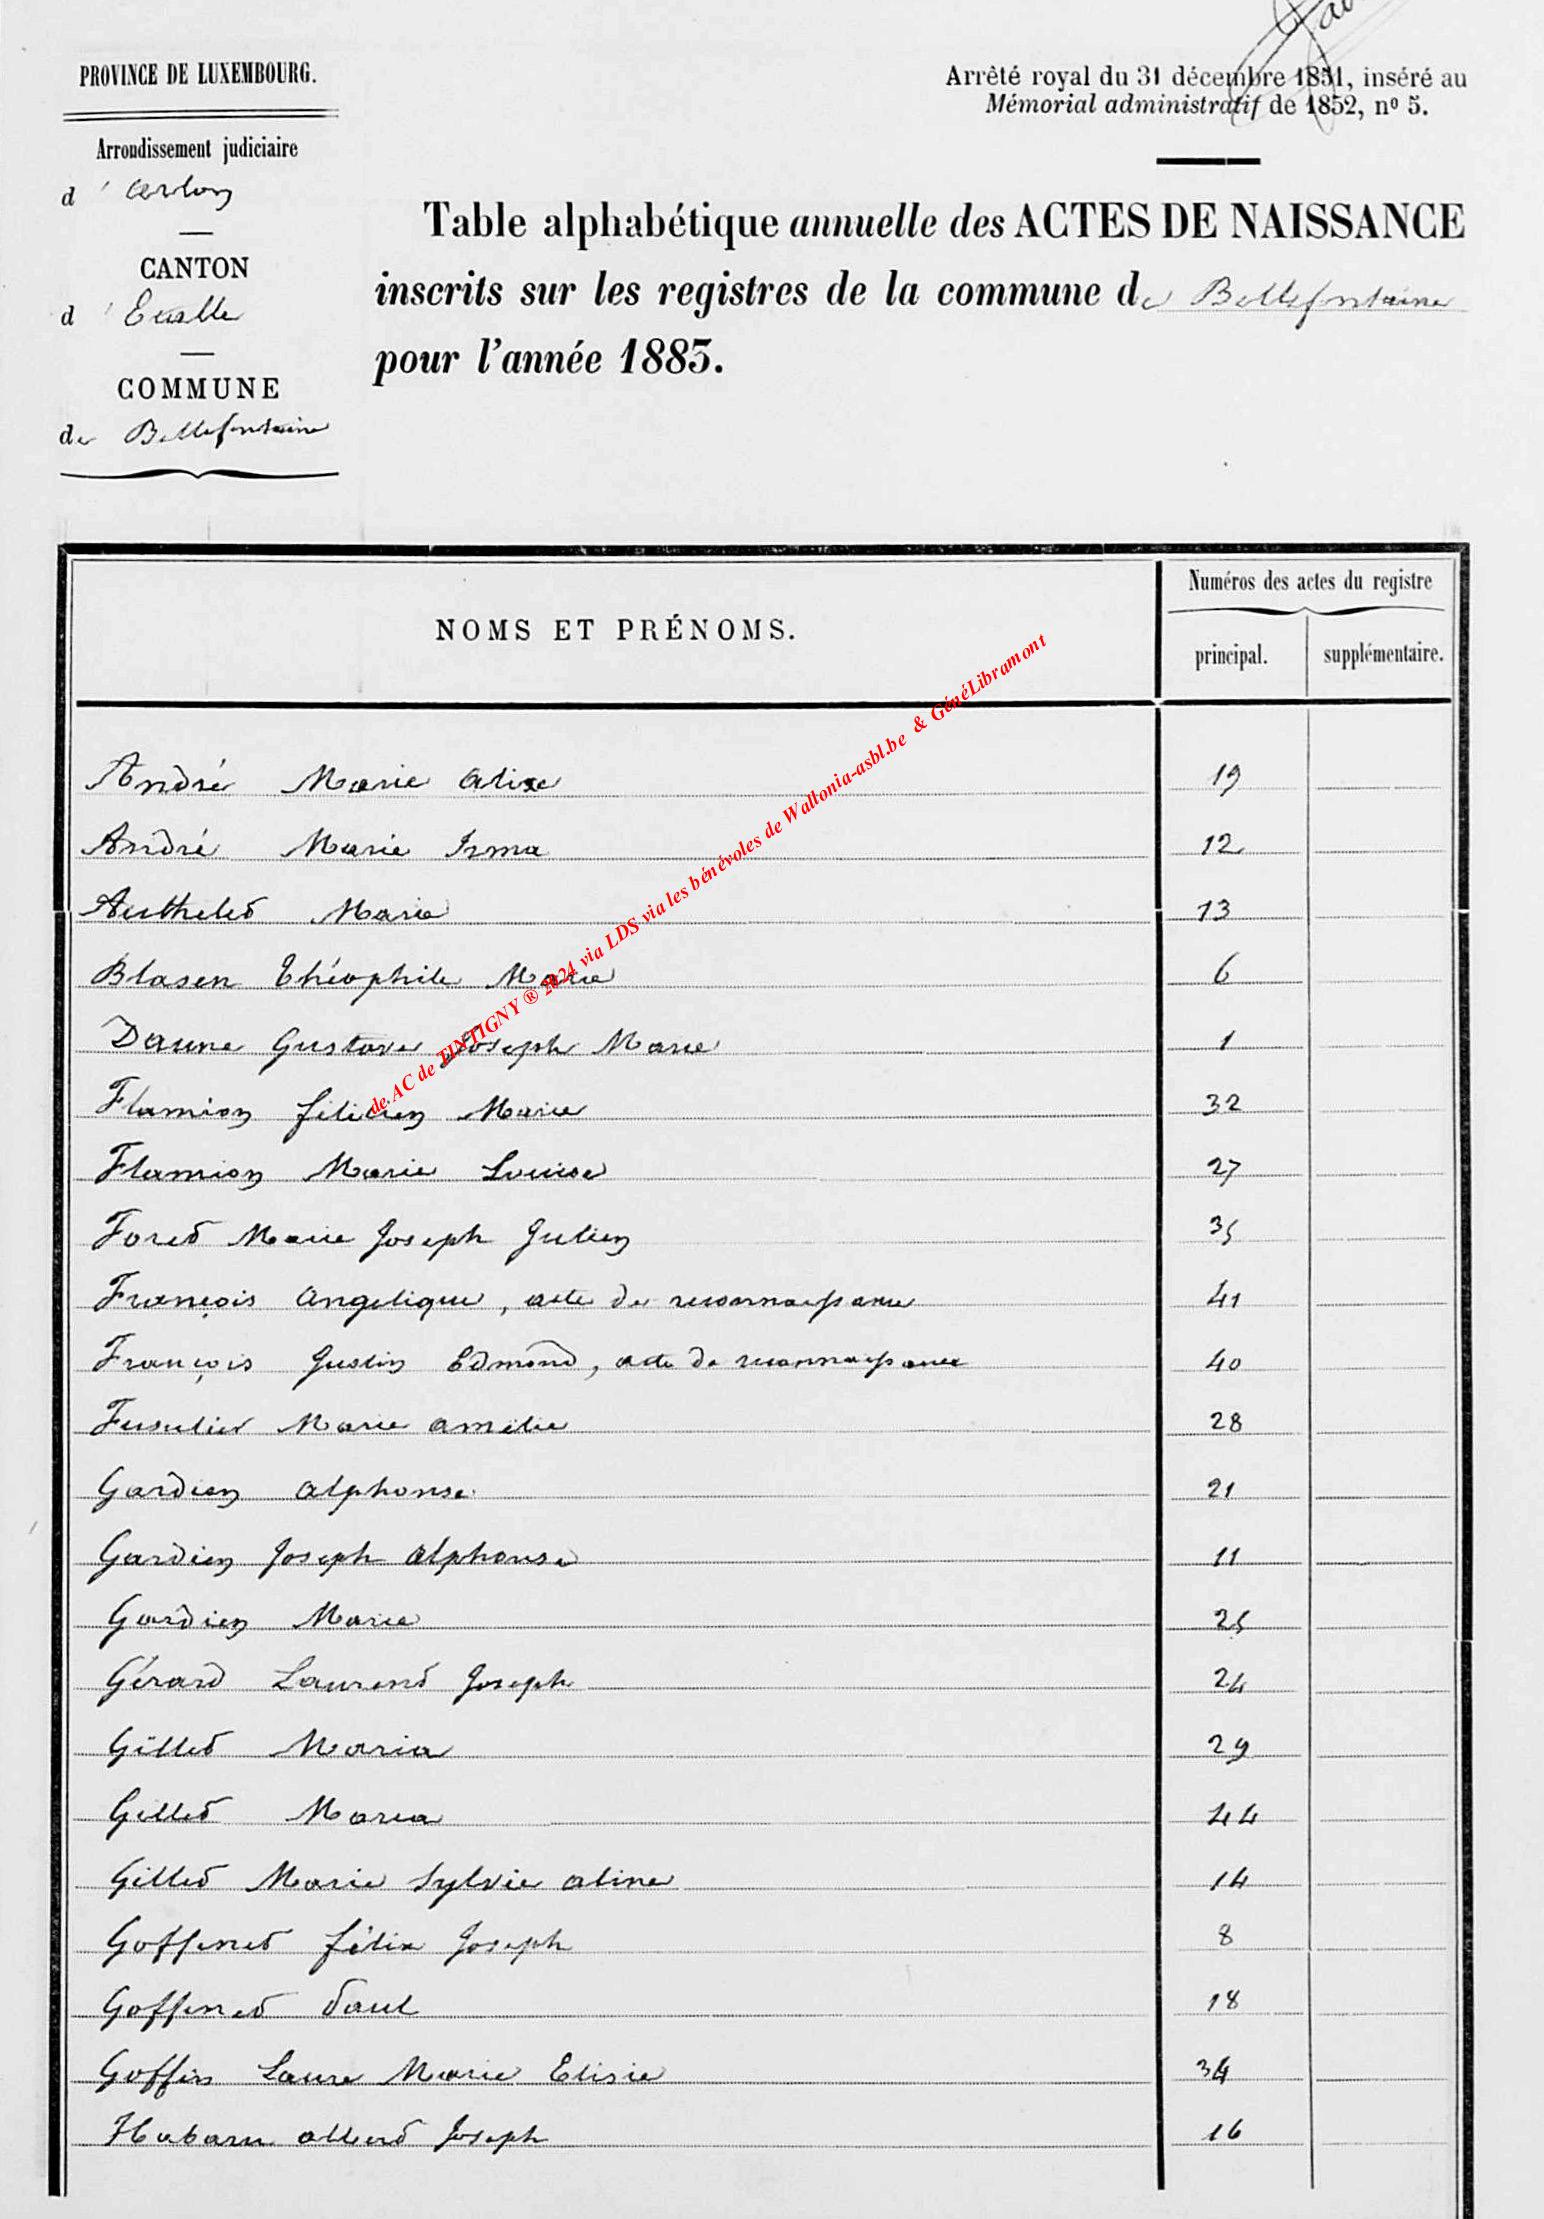 PROVINCE DE LUXEMBOURG.
Arrondissement judiciaire
d'Arlon
CANTON
d'Etalle
COMMUNE
de Bellefontaine
Arrêté royal du 31 décembre 1851, inséré au
Mémorial administratif de 1852, nº 5.
Table alphabétique annuelle des ACTES DE NAISSANCE
inscrits sur les registres de la commune de Bellefontaine
pour l'année 1883.
NOMS ET PRÉNOMS.
Numéros des actes du registre
principal. supplémentaire.
André Marie Alixe 19
André Marie Irma 12
Authelet Marie 13
Blasen Théophile Marie 6
Daune Gustave Joseph Marie 1
Flamion félicien Marie 32
Flamion Marie Louise 27
Foret Marie Joseph Julien 35
François Angelique, acte de reconnaissance 41
François Justin Edmond, acte de reconnaissance 40
Fusulier Marie amélie 28
Gardien Alphonse 21
Gardien Joseph Alphonse 11
Gardien Marie 25
Gérard Laurent Joseph 24
Gillet Maria 29
Gillet Maria 44
Gillet Marie Sylvie aline 14
Goffinet félix Joseph 8
Goffinet Paul 18
Goffin Laure Marie Elisie 34
Habaru albert Joseph 16
de AC de TINTIGNY ® 2024 via LDS via les bénévoles de Wallonia-asbl.be & GénéLibramont